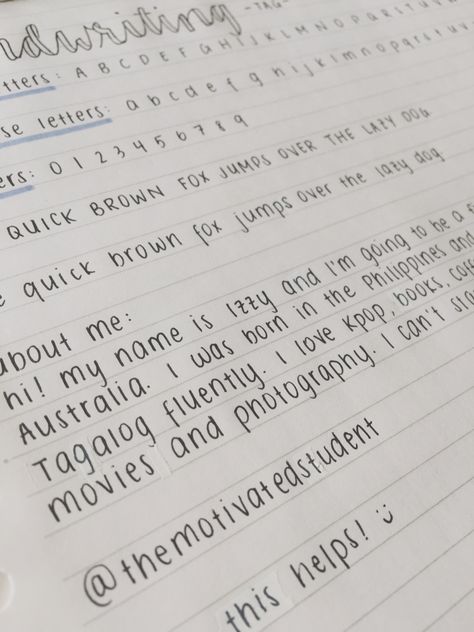 handwriting -TAG-
letters: A B C D E F G H I J K L M N O P Q R S T U
case letters: a b c d e f g h i j k l m n o p q r s t u v
numbers: 0 1 2 3 4 5 6 7 8 9
QUICK BROWN FOX JUMPS OVER THE LAZY DOG
quick brown fox jumps over the lazy dog
about me:
hi! my name is Izzy and I'm going to be a
Australia. I was born in the Philippines and
Tagalog fluently. I love Kpop, books,
movies and photography. I can't
@themotivatedstudent
this helps! :)